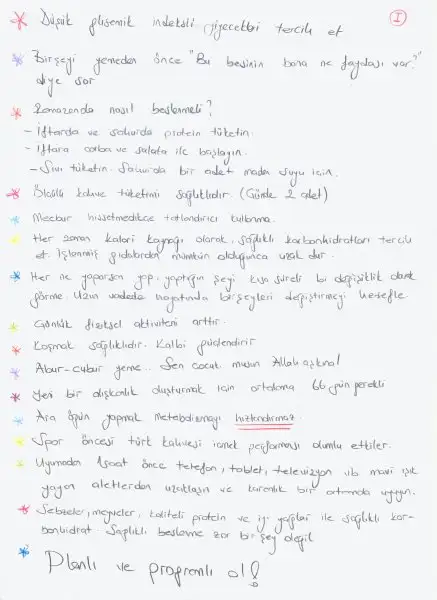 I
* Düşük glisemik indeksli yiyecekleri tercih et
* Birşeyi yemeden önce "Bu besinin bana ne faydası var?"
diye sor
* Ramazanda nasıl beslenmeli?
- İftarda ve sahurda protein tüketin.
- İftara çorba ve salata ile başlayın.
- Sıvı tüketin. Sahurda bir adet maden suyu için.
* Ölçülü kahve tüketimi sağlıklıdır. (Günde 2 adet)
* Mecbur hissetmedikçe tatlandırıcı kullanma.
* Her zaman kalori kaynağı olarak, sağlıklı karbonhidratları tercih
et. İşlenmiş gıdalardan mümkün olduğunca uzak dur.
* Her ne yaparsan yap, yaptığın şeyi kısa süreli bi değişiklik olarak
görme. Uzun vadede hayatında birşeyleri değiştirmeyi hedefle.
* Günlük fiziksel aktiviteni arttır.
* Koşmak sağlıklıdır. Kalbi güçlendirir
* Abur-cubur yeme.. Sen çocuk musun Allah aşkına!
* Yeni bir alışkanlık oluşturmak için ortalama 66 gün gerekli
* Ara öğün yapmak metabolizmayı hızlandırmaz.
* Spor öncesi türk kahvesi içmek performansı olumlu etkiler.
* Uyumadan 1 saat önce telefon, tablet, televizyon vb mavi ışık
yayan aletlerden uzaklaşın ve karanlık bir ortamda uyuyun.
* Sebzeler, meyveler, kaliteli protein ve iyi yağlar ile sağlıklı kar-
bonhidrat sağlıklı beslenme zor bir şey değil
* Planlı ve programlı ol!